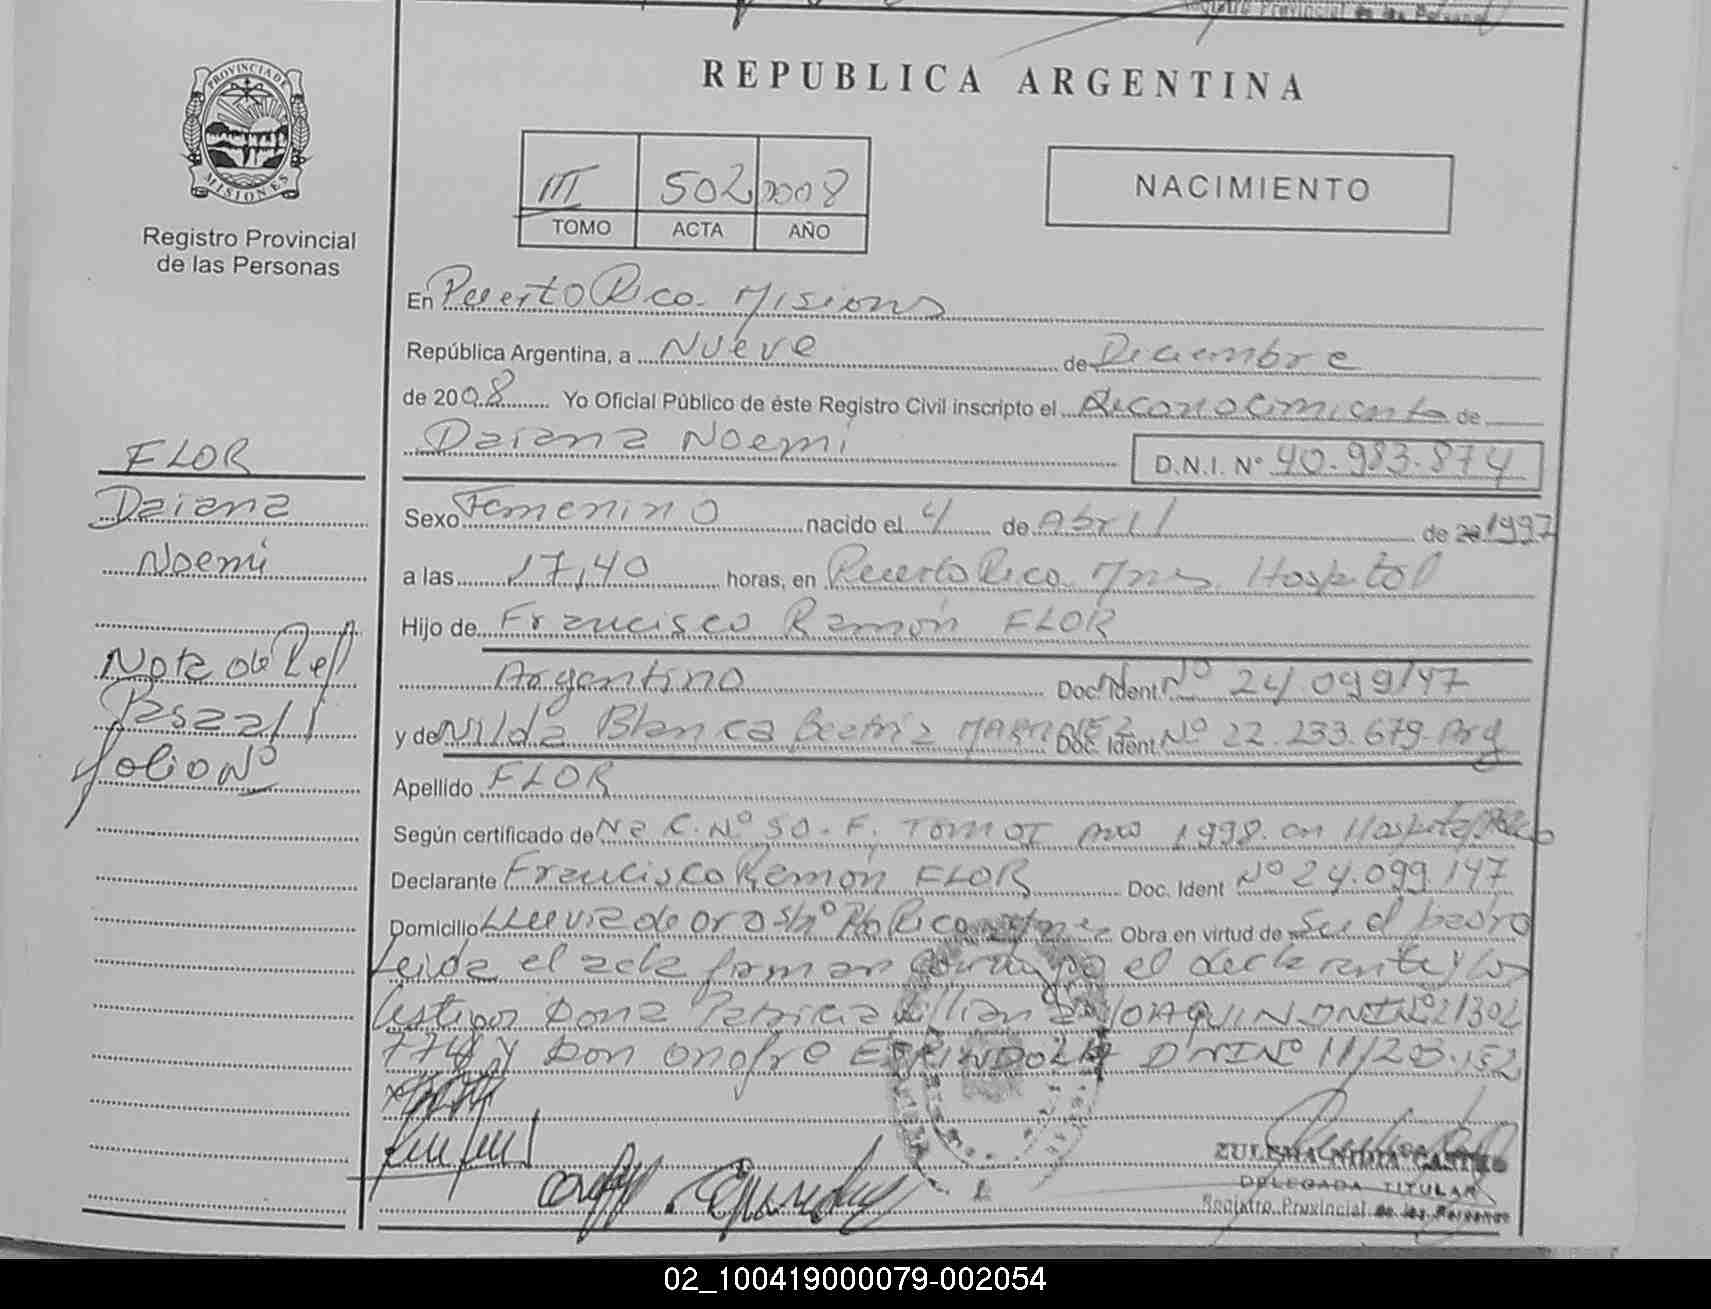 Registro Provincial de las Personas
REPUBLICA ARGENTINA
PROVINCIA DE MISIONES
Registro Provincial
de las Personas
III 502 2008
TOMO ACTA AÑO
NACIMIENTO
En Puerto Rico. Misiones
República Argentina, a Nueve de Diciembre
de 2008 Yo Oficial Público de éste Registro Civil inscripto el Reconocimiento de
Daiana Noemi D.N.I. N° 40.983.874
Sexo Femenino nacido el 4 de Abril de 20 1997
a las 17,40 horas, en Puerto Rico Mnes. Hospital
Hijo de Francisco Ramón FLOR
Argentino Doc. Ident N° 24.099147
y de Nilda Blanca Beatriz MARTINEZ Doc. Ident N° 22.233.679. Arg
Apellido FLOR
Según certificado de Na C. N° 50. F. Tomo I Año 1998. en Hospital
Declarante Francisco Ramón FLOR Doc. Ident N° 24.099.147
Domicilio Lluvia de oro s/n° Pto Rico Obra en virtud de Ser el padre
Leida el acta firman conmigo el declarante y los
testigos Doña Patricia Lilian JOAQUIN DNI N° 21302
774 y Don Onofre ESPINDOLA DNI N° 11/203.152
FLOR
Daiana
Noemi
Nota de Ref
Pasa al
folio N°
ZULEMA NIDIA CASTRO
DELEGADA TITULAR
Registro Provincial de las Personas
02_100419000079-002054